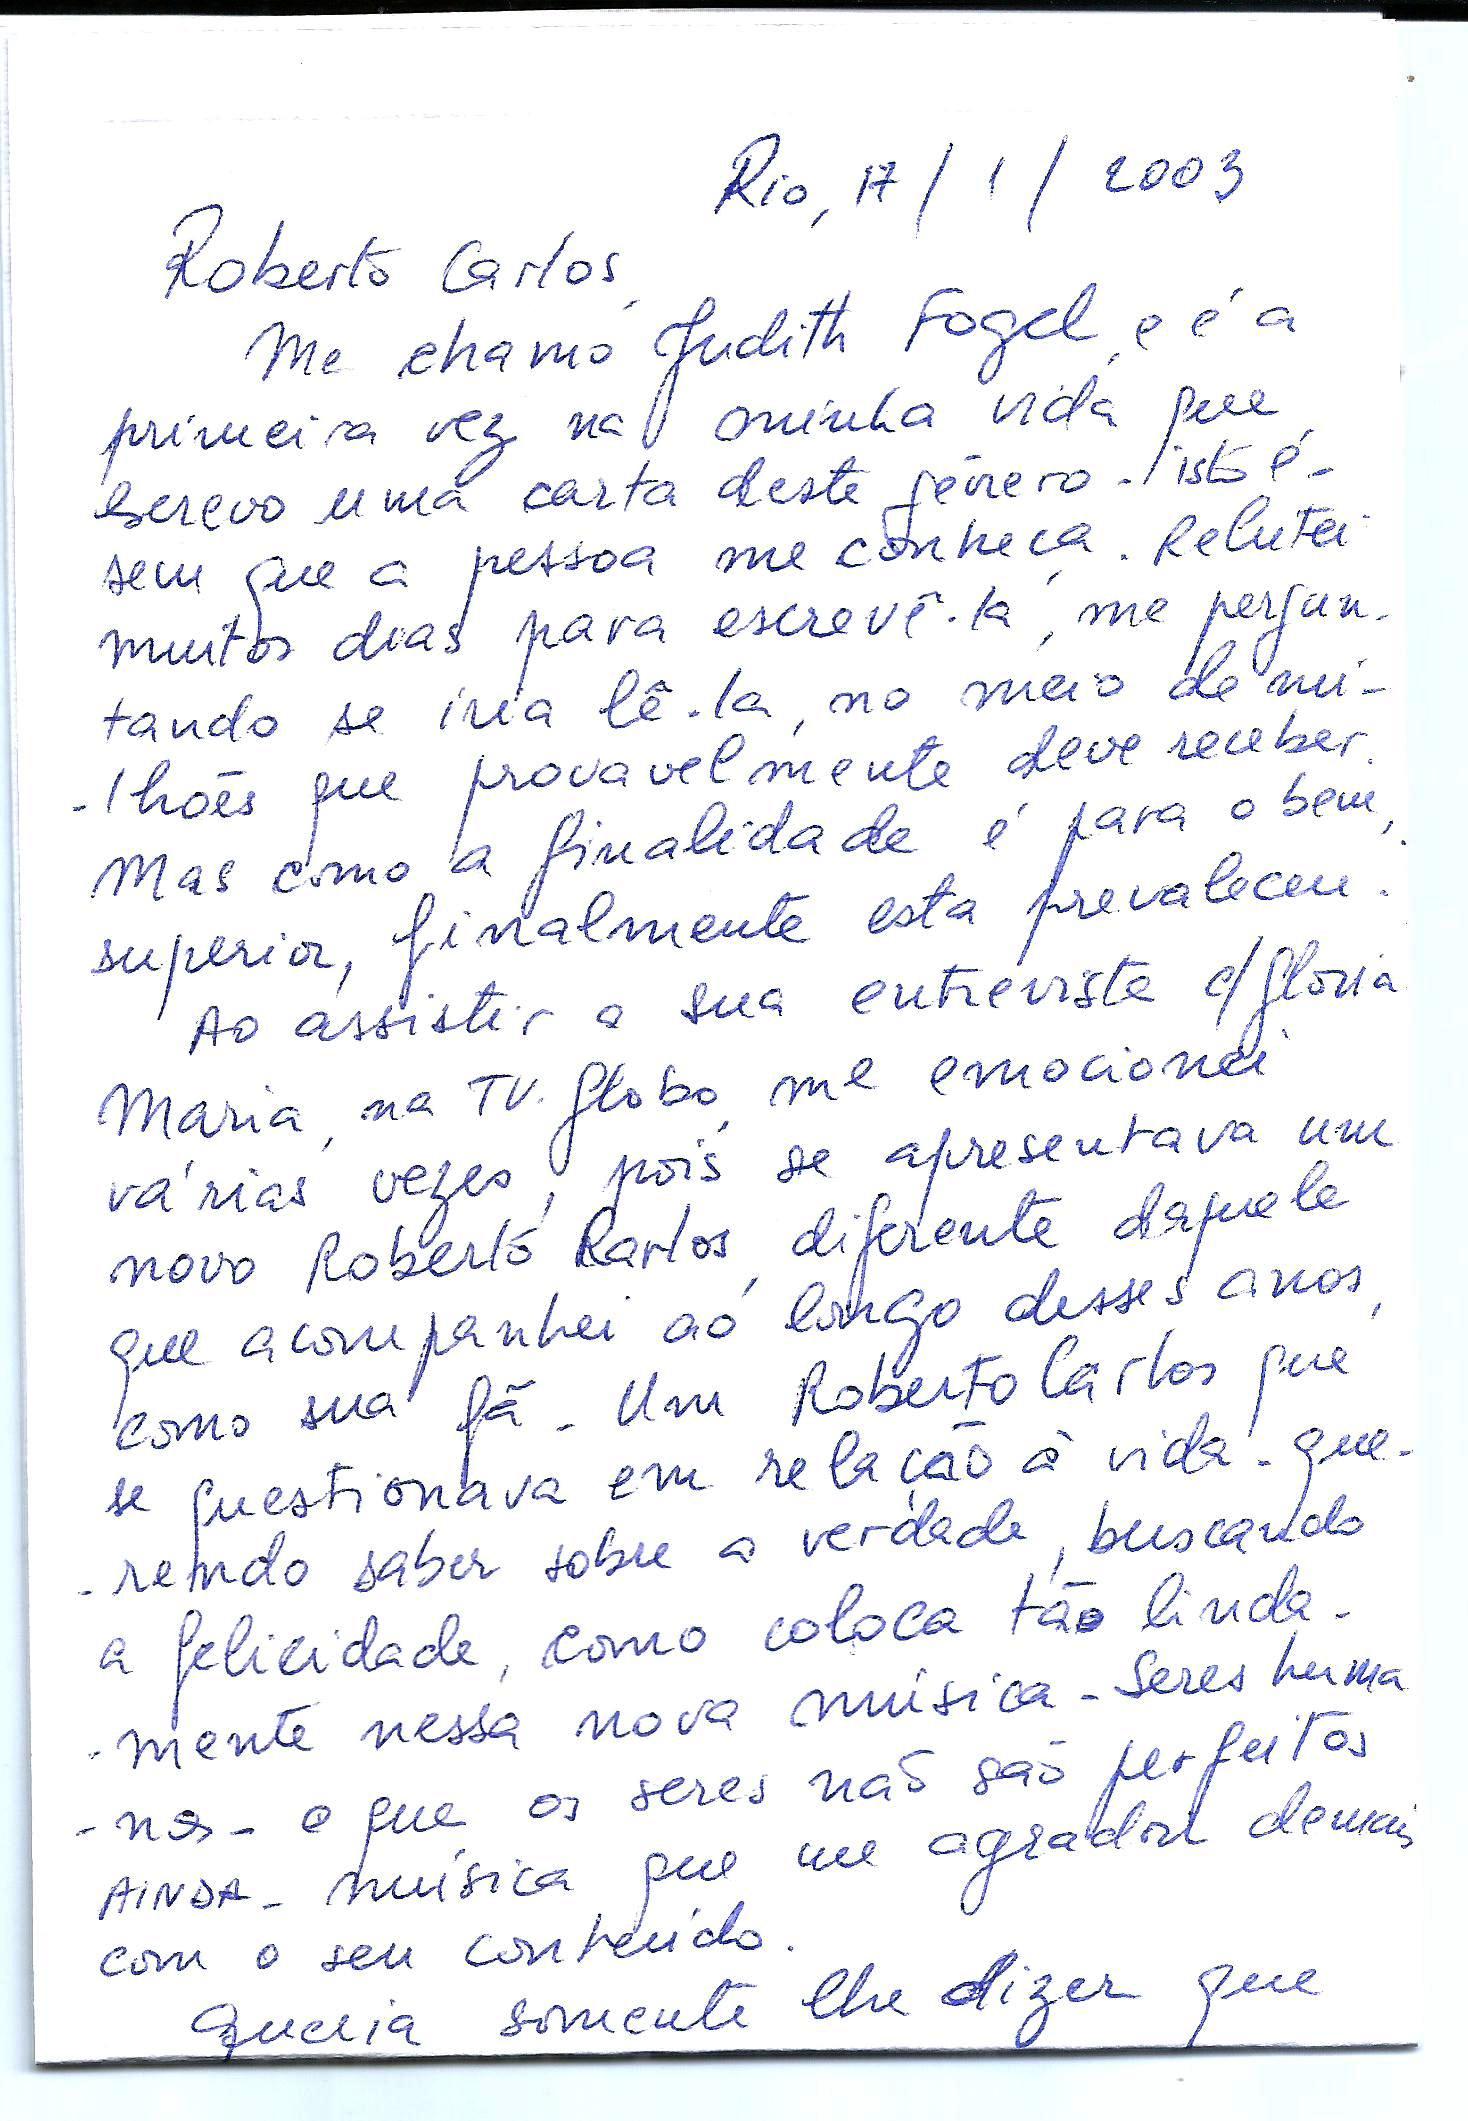 Rio, 17/1/2003
Roberto Carlos,
Me chamo Judith Fogel, e é a
primeira vez na minha vida que
escrevo uma carta deste gênero - isto é -
sem que a pessoa me conheça. Relutei
muitos dias para escrevê-la, me pergun-
tando se iria lê-la, no meio de mi-
-lhões que provavelmente deve receber.
Mas como a finalidade é para o bem,
superior, finalmente esta prevaleceu.
Ao assistir a sua entrevista c/ Gloria
Maria, na TV. Globo, me emocionei
várias vezes, pois se apresentava um
novo Roberto Carlos, diferente daquele
que acompanhei ao longo desses anos,
como sua fã - Um Roberto Carlos que
se questionava em relação à vida - que-
-rendo saber sobre a verdade, buscando
a felicidade, como coloca tão linda-
-mente nessa nova música - Seres huma
-nos - e que os seres não são perfeitos
AINDA - música que me agradou demais
com o seu conteúdo.
Queria somente lhe dizer que